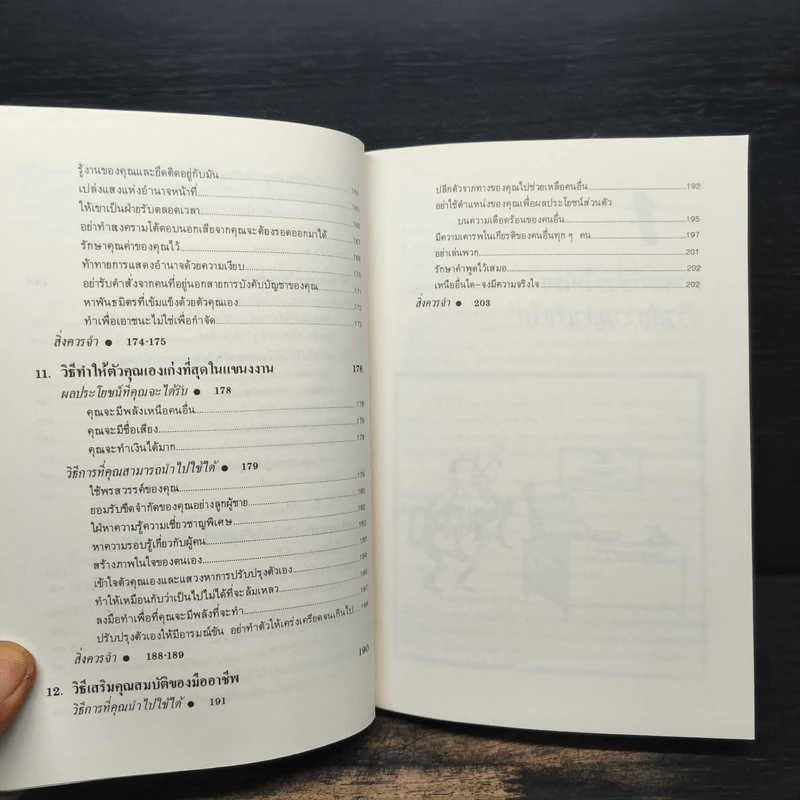 รู้งานของคุณและยึดติดอยู่กับมัน
เปล่งแสงแห่งอำนาจหน้าที่ 164
ให้เขาเป็นฝ่ายรับตลอดเวลา 165
อย่าทำสงครามโต้ตอบนอกเสียจากคุณจะต้องรอดออกมาได้ 166
รักษาคุณค่าของคุณไว้ 167
ท้าทายการแสดงอำนาจด้วยความเงียบ 168
อย่ารับคำสั่งจากคนที่อยู่นอกสายการบังคับบัญชาของคุณ 170
หาพันธมิตรที่เข้มแข็งด้วยตัวคุณเอง 171
ทำเพื่อเอาชนะไม่ใช่เพื่อกำจัด 172
173
สิ่งควรจำ ● 174-175
11. วิธีทำให้ตัวคุณเองเก่งที่สุดในแขนงงาน 178
ผลประโยชน์ที่คุณจะได้รับ ● 178
คุณจะมีพลังเหนือคนอื่น 178
คุณจะมีชื่อเสียง 179
คุณจะทำเงินได้มาก 179
วิธีการที่คุณสามารถนำไปใช้ได้ ● 179
ใช้พรสวรรค์ของคุณ 179
ยอมรับขีดจำกัดของคุณอย่างลูกผู้ชาย 180
ใฝ่หาความรู้ความเชี่ยวชาญพิเศษ 182
หาความรอบรู้เกี่ยวกับผู้คน 183
สร้างภาพในใจของตนเอง 183
เข้าใจตัวคุณเองและแสวงหาการปรับปรุงตัวเอง 184
ทำให้เหมือนกับว่าเป็นไปไม่ได้ที่จะล้มเหลว 186
ลงมือทำเพื่อที่คุณจะมีพลังที่จะทำ 187
ปรับปรุงตัวเองให้มีอารมณ์ขัน อย่าทำตัวให้เคร่งเครียดจนเกินไป 188
สิ่งควรจำ ● 188-189
12. วิธีเสริมคุณสมบัติของมืออาชีพ 190
วิธีการที่คุณนำไปใช้ได้ ● 191
ปลีกตัวจากทางของคุณไปช่วยเหลือคนอื่น 192
อย่าใช้ตำแหน่งของคุณเพื่อผลประโยชน์ส่วนตัว
บนความเดือดร้อนของคนอื่น 195
มีความเคารพในเกียรติของคนอื่นทุก ๆ คน 197
อย่าเล่นพวก 201
รักษาคำพูดไว้เสมอ 202
เหนืออื่นใด-จงมีความจริงใจ 202
สิ่งควรจำ ● 203